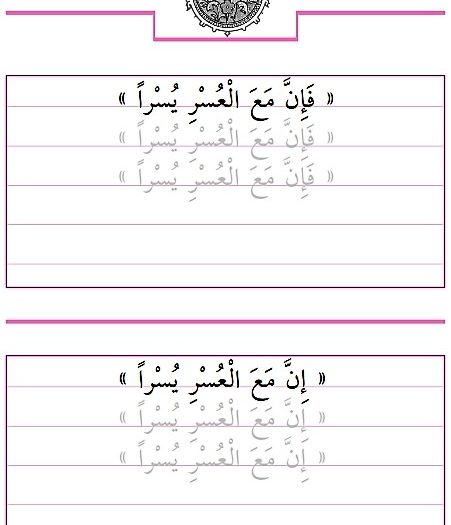 « فَإِنَّ مَعَ الْعُسْرِ يُسْراً »
« فَإِنَّ مَعَ الْعُسْرِ يُسْراً »
« فَإِنَّ مَعَ الْعُسْرِ يُسْراً »
« إِنَّ مَعَ الْعُسْرِ يُسْراً »
« إِنَّ مَعَ الْعُسْرِ يُسْراً »
« إِنَّ مَعَ الْعُسْرِ يُسْراً »